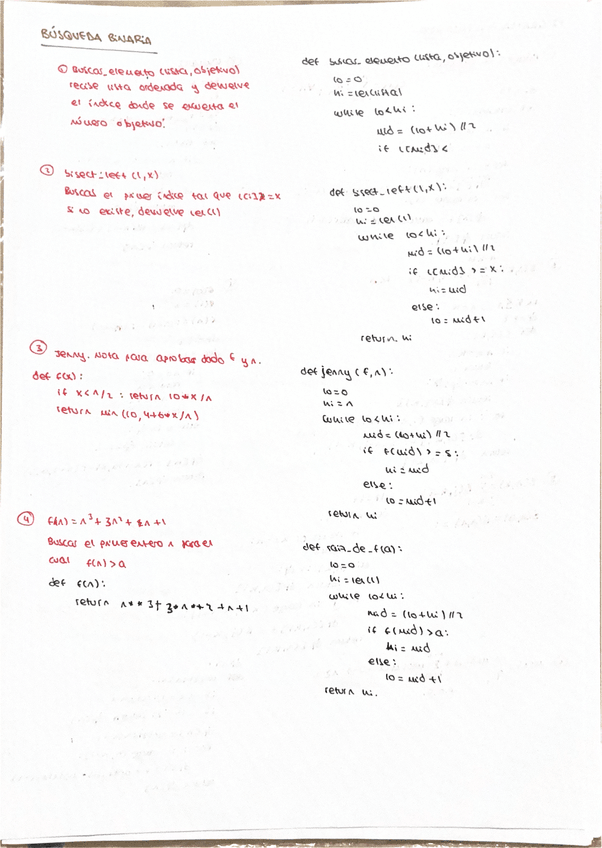 BÚSQUEDA BINARIA
① Buscas_elemento (lista, objetivo)
recibe lista ordenada y devuelve
el índice donde se encuentra el
número objetivo.
def buscas_elemento (lista, objetivo):
lo=0
hi=len(lista)
while lo<hi:
mid = (lo+hi)//2
if l[mid] <
② bisect_left (l,x)
Buscas el primer índice tal que l[i]>=x
si no existe, devuelve len(l)
def bisect_left (l,x):
lo=0
hi=len(l)
while lo<hi:
mid = (lo+hi)//2
if l[mid] >= x:
hi=mid
else:
lo=mid+1
return hi
③ Jenny. Nota para aprobar dado f y n.
def f(x):
if x<n/2: return 10*x/n
return min(10,4+6*x/n)
def jenny (f,n):
lo=0
hi=n
while lo<hi:
mid=(lo+hi)//2
if f(mid) >= 5:
hi=mid
else:
lo=mid+1
return hi
④ f(n) = n³+3n²+ n+1
Buscas el primer entero n para el
cual f(n)>a
def f(n):
return n**3+3*n**2+n+1
def raiz_de_f(a):
lo=0
hi=len(l)
while lo<hi:
mid = (lo+hi)//2
if f(mid)>a:
hi=mid
else:
lo=mid+1
return hi.